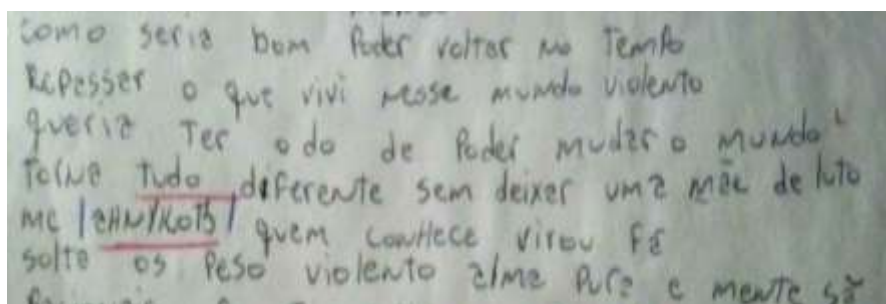 como seria bom Poder voltar no Tempo
Repassar o que vivi nesse mundo violento
queria Ter o do de Poder mudar o mundo
Torna Tudo diferente sem deixar uma mãe de luto
mc quem conhece virou Fã
solto os Peso violento alma Pura e mente sã